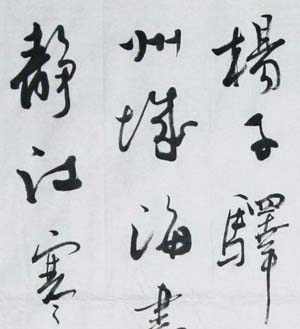 楊子驛
州城海
靜江寒